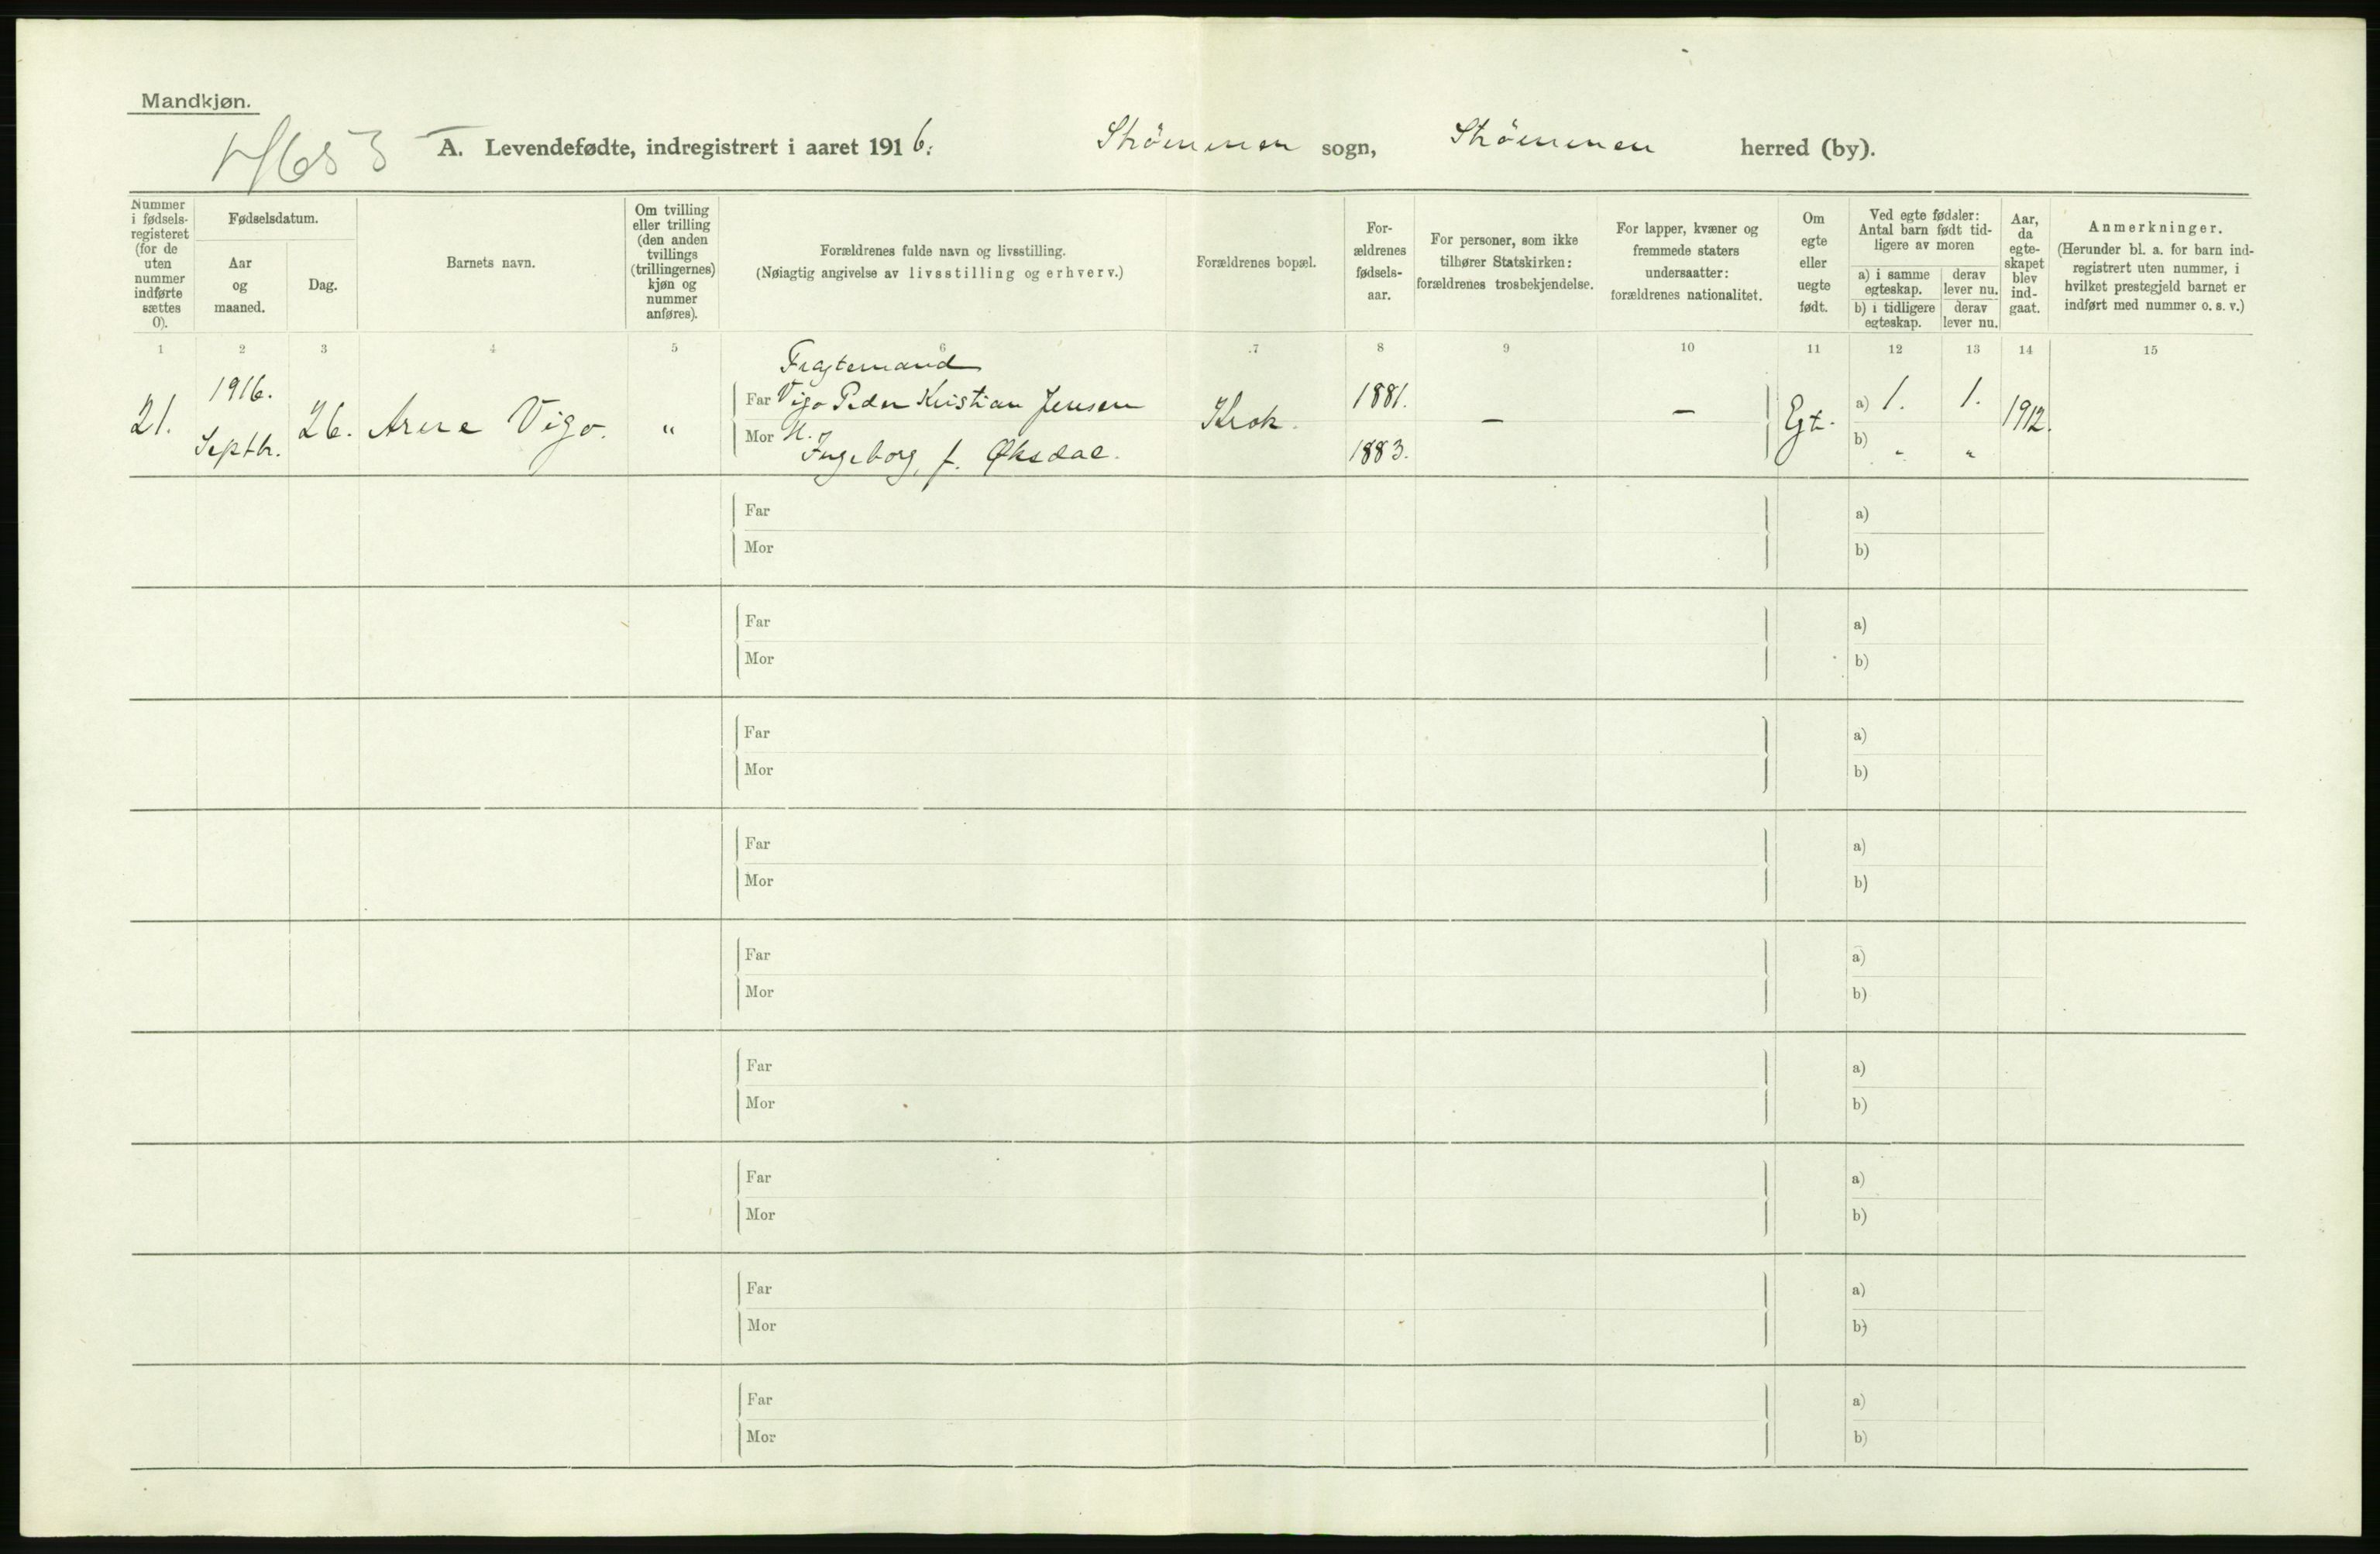 Mandkjøn.
A. Levendefødte, indregistrert i aaret 1916. Strömmen sogn, Strömmen herred (by).
Nummer i fødsels-registeret (for de uten nummer indførte sættes 0).
Fødselsdatum.
Aar og maaned.
Dag.
Barnets navn.
Om tvilling eller trilling (den anden tvillings (trillingernes) kjøn og nummer anføres).
Forældrenes fulde navn og livsstilling.
(Nøiagtig angivelse av livsstilling og erhverv.)
Forældrenes bopæl.
For-ældrenes fødsels-aar.
For personer, som ikke tilhører Statskirken: forældrenes trosbekjendelse.
For lapper, kvæner og fremmede staters undersaatter: forældrenes nationalitet.
Om egte eller uegte født.
Ved egte fødsler: Antal barn født tid-ligere av moren
a) i samme egteskap.
derav lever nu.
b) i tidligere egteskap.
derav lever nu.
Aar, da egte-skapet blev ind-gaat.
Anmerkninger.
(Herunder bl. a. for barn ind-registrert uten nummer, i hvilket prestegjeld barnet er indført med nummer o. s. v.)
1 2 3 4 5 6 7 8 9 10 11 12 13 14 15
Fragtemand
1916. Far Vigo Peder Kristian Jensen 1881. a) 1. 1.
21. 26. Arne Vigo. " Krok. – – Egt. 1912.
Septbr. Mor H. Ingeborg, f. Øksdal. 1883. b) " "
Far a)
Mor b)
Far a)
Mor b)
Far a)
Mor b)
Far a)
Mor b)
Far a)
Mor b)
Far a)
Mor b)
Far a)
Mor b)
Far a)
Mor b)
Far a)
Mor b)